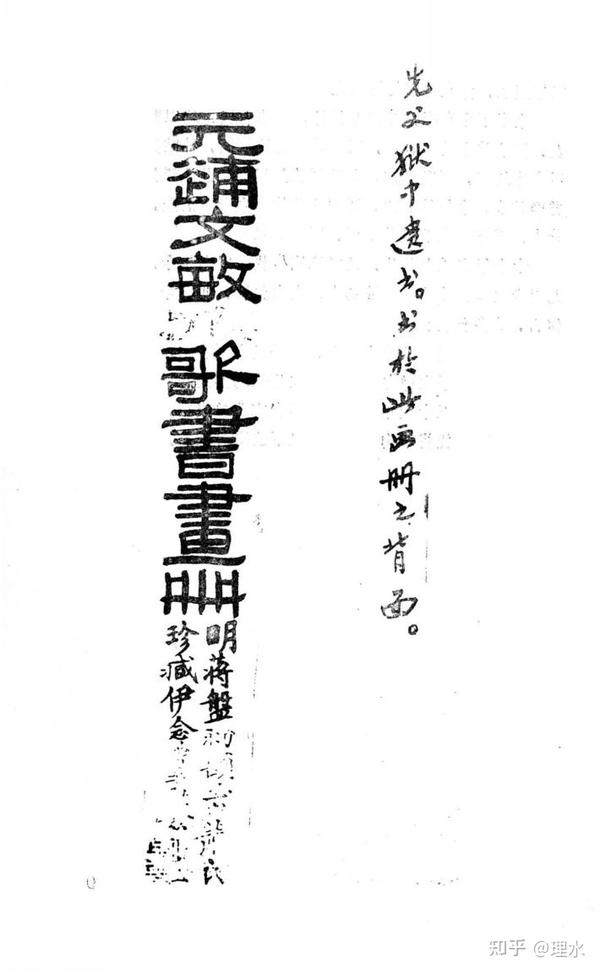 先父獄中遺书。书於此画册之背面。
元趙文敏 歌書畫冊
明蔣盤初
珍藏伊念
知乎 @理水